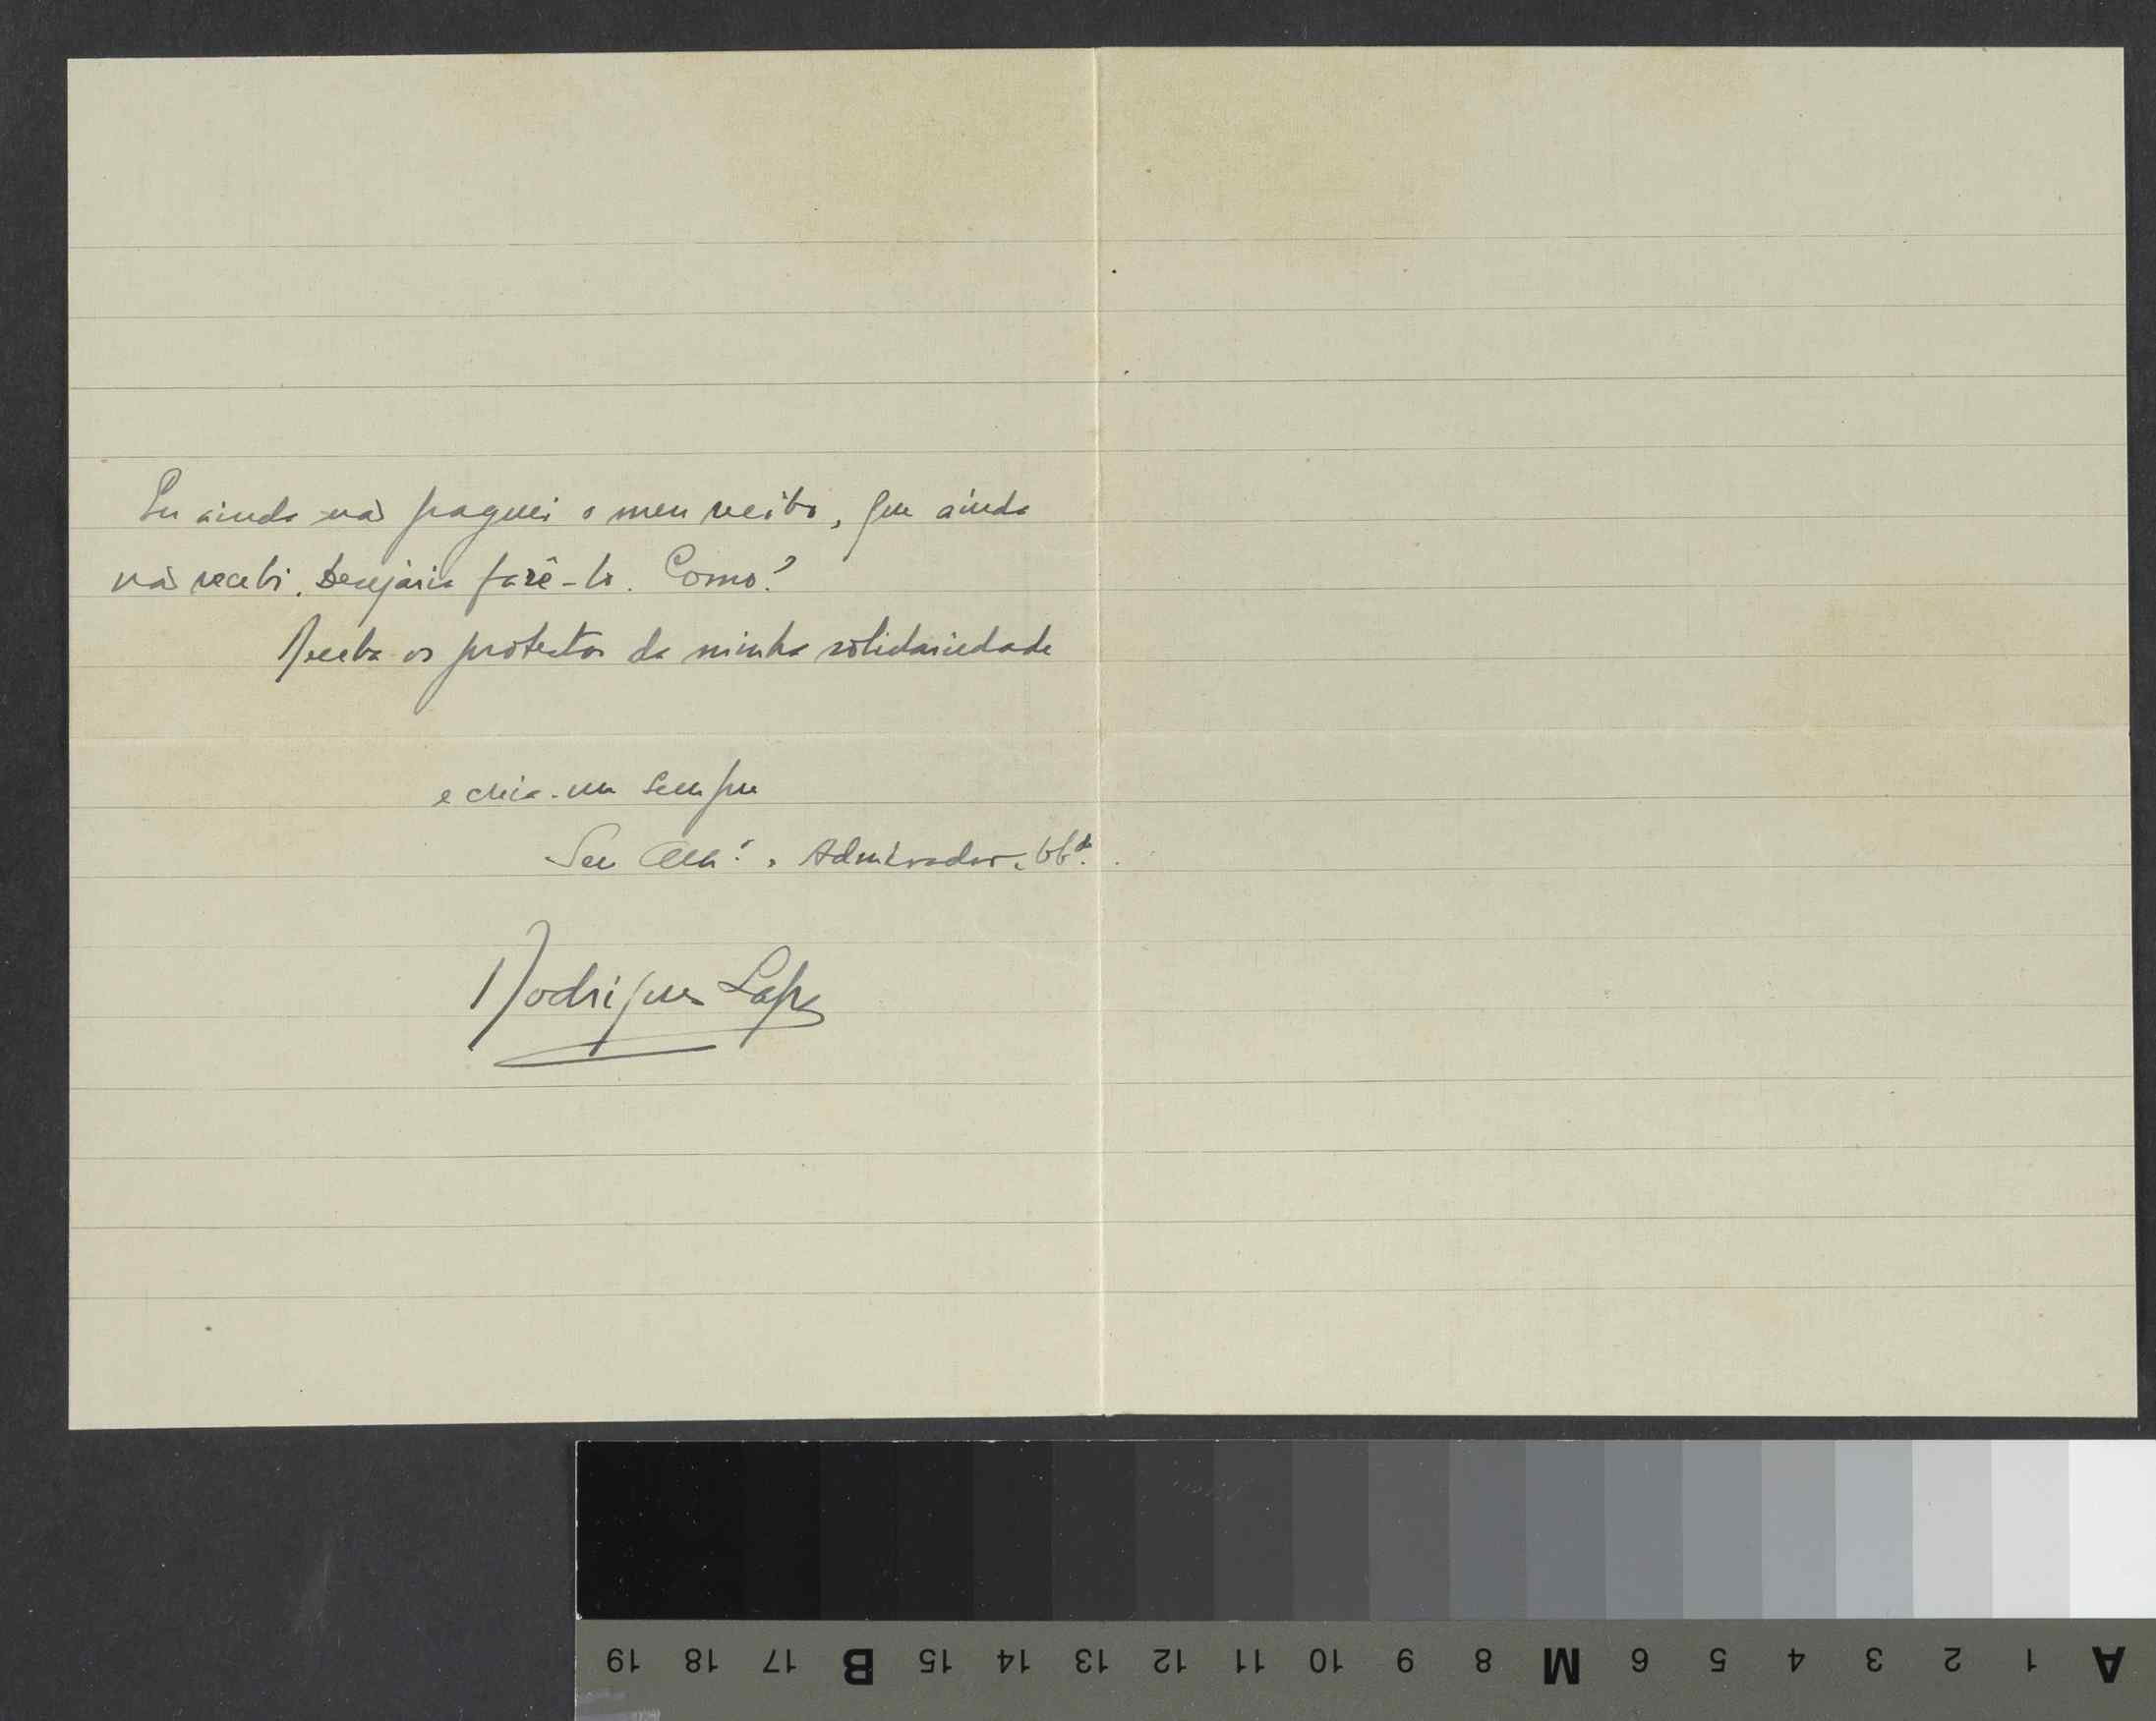 Eu ainda não paguei o meu recibo, que ainda
não recebi. Desejaria fazê-lo. Como?
Receba os protestos da minha solidariedade
e creia-me sempre
Seu Admirador, obg.º
Rodrigues Lapa
19 18 17 B 15 14 13 12 11 10 9 8 M 6 5 4 3 2 1 A